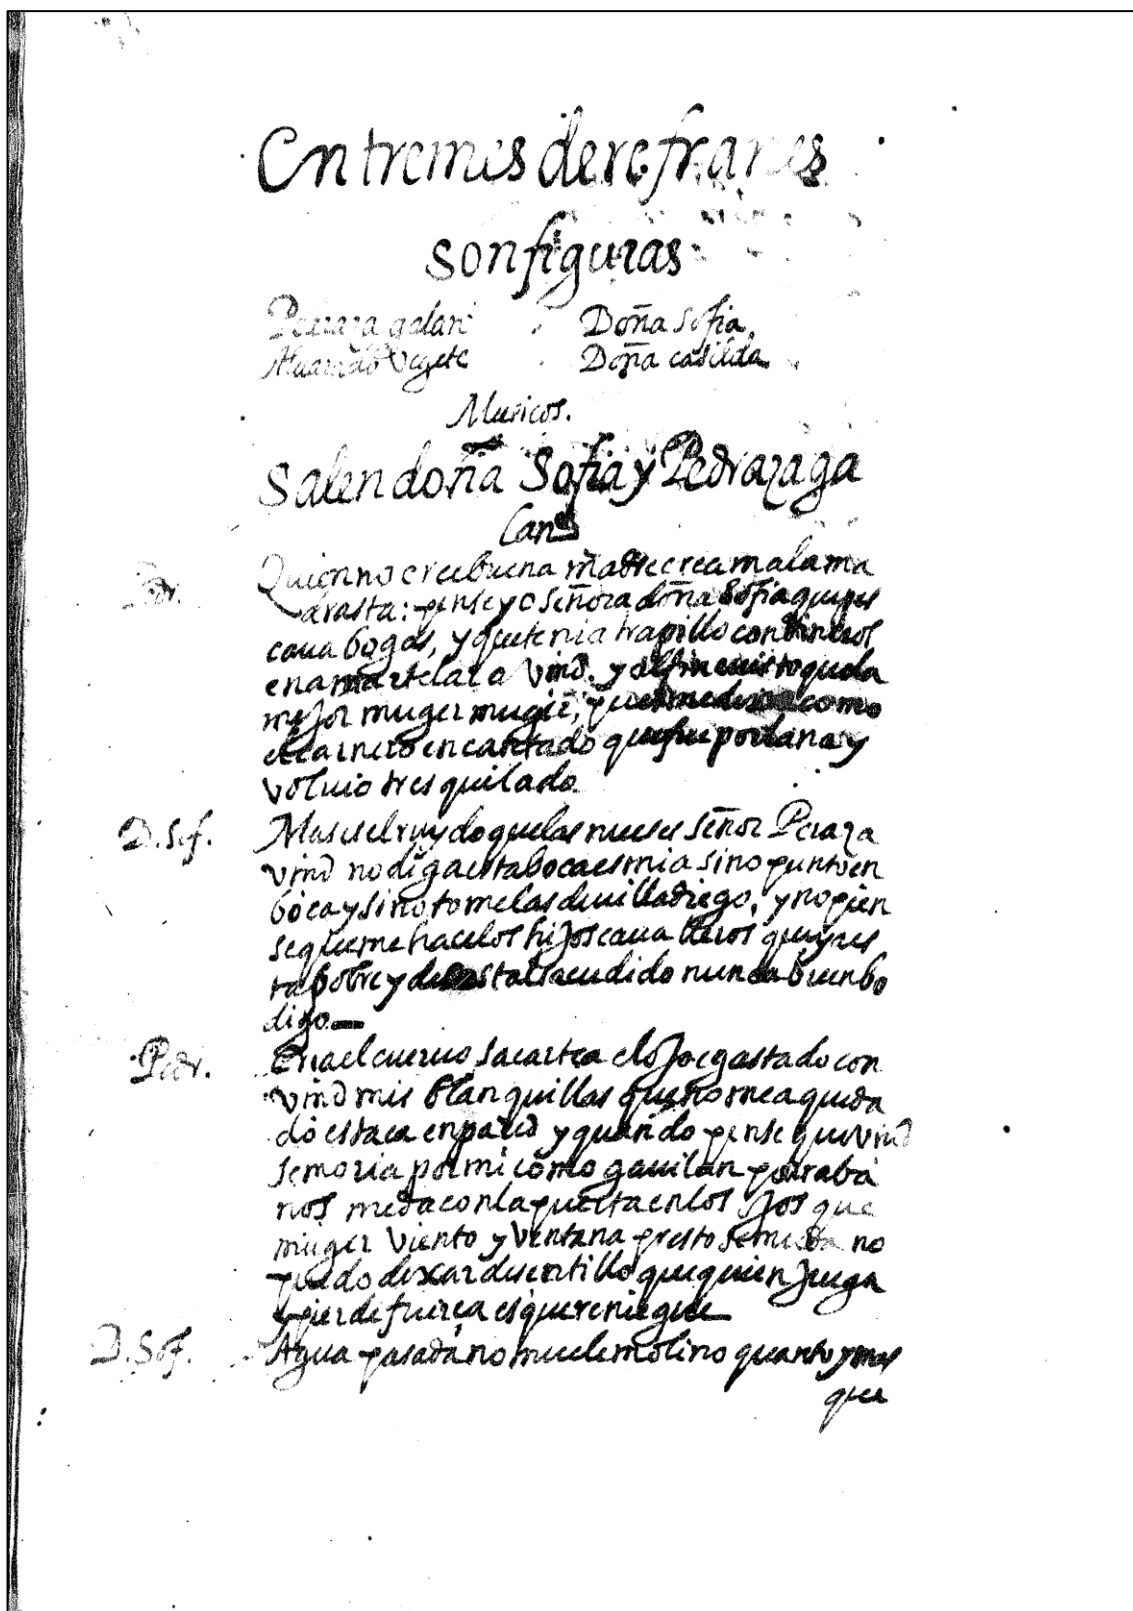 Entremes de refranes
son figuras
Peraza galan Doña Sofia
Aluarado Vegete Doña casilda
Musicos.
Salen doña Sofia y Pedraza ga
lan
Pedr. Quien no cree buena madre crea mala ma
drasta: pense yo señora doña Sofia que pes
caua bogas, y que tenia trapillo con dineros
en amartelar a Vmd. y al fin e uisto que la
mejor muger muger, pues me dexo como
el carnero encantado que fue por lana y
voluio tresquilado.
D. Sof. Mas es el ruydo que las nueses señor Peraza
vmd no diga esta boca es mia sino punto en
boca y sino tome las de uilladiego, y no pien
se que me hace los hijos caualleros que yr es
ta pobre y de costal sacudido nunca buen bo
digo.
Pedr. Cria el cueruo sacarte a el ojo e gastado con
vmd mis blanquillas que no me a queda
do estaca en pared y quando pense que vmd
se moria por mi como gauilan por raba
nos me da con la puerta en los ojos que
muger viento y ventana presto se muda no
puedo dexar de sentillo que quien juega
y pierde fuerça es que reniegue
D. Sof. Agua pasada no muele molino quanto y mas
que